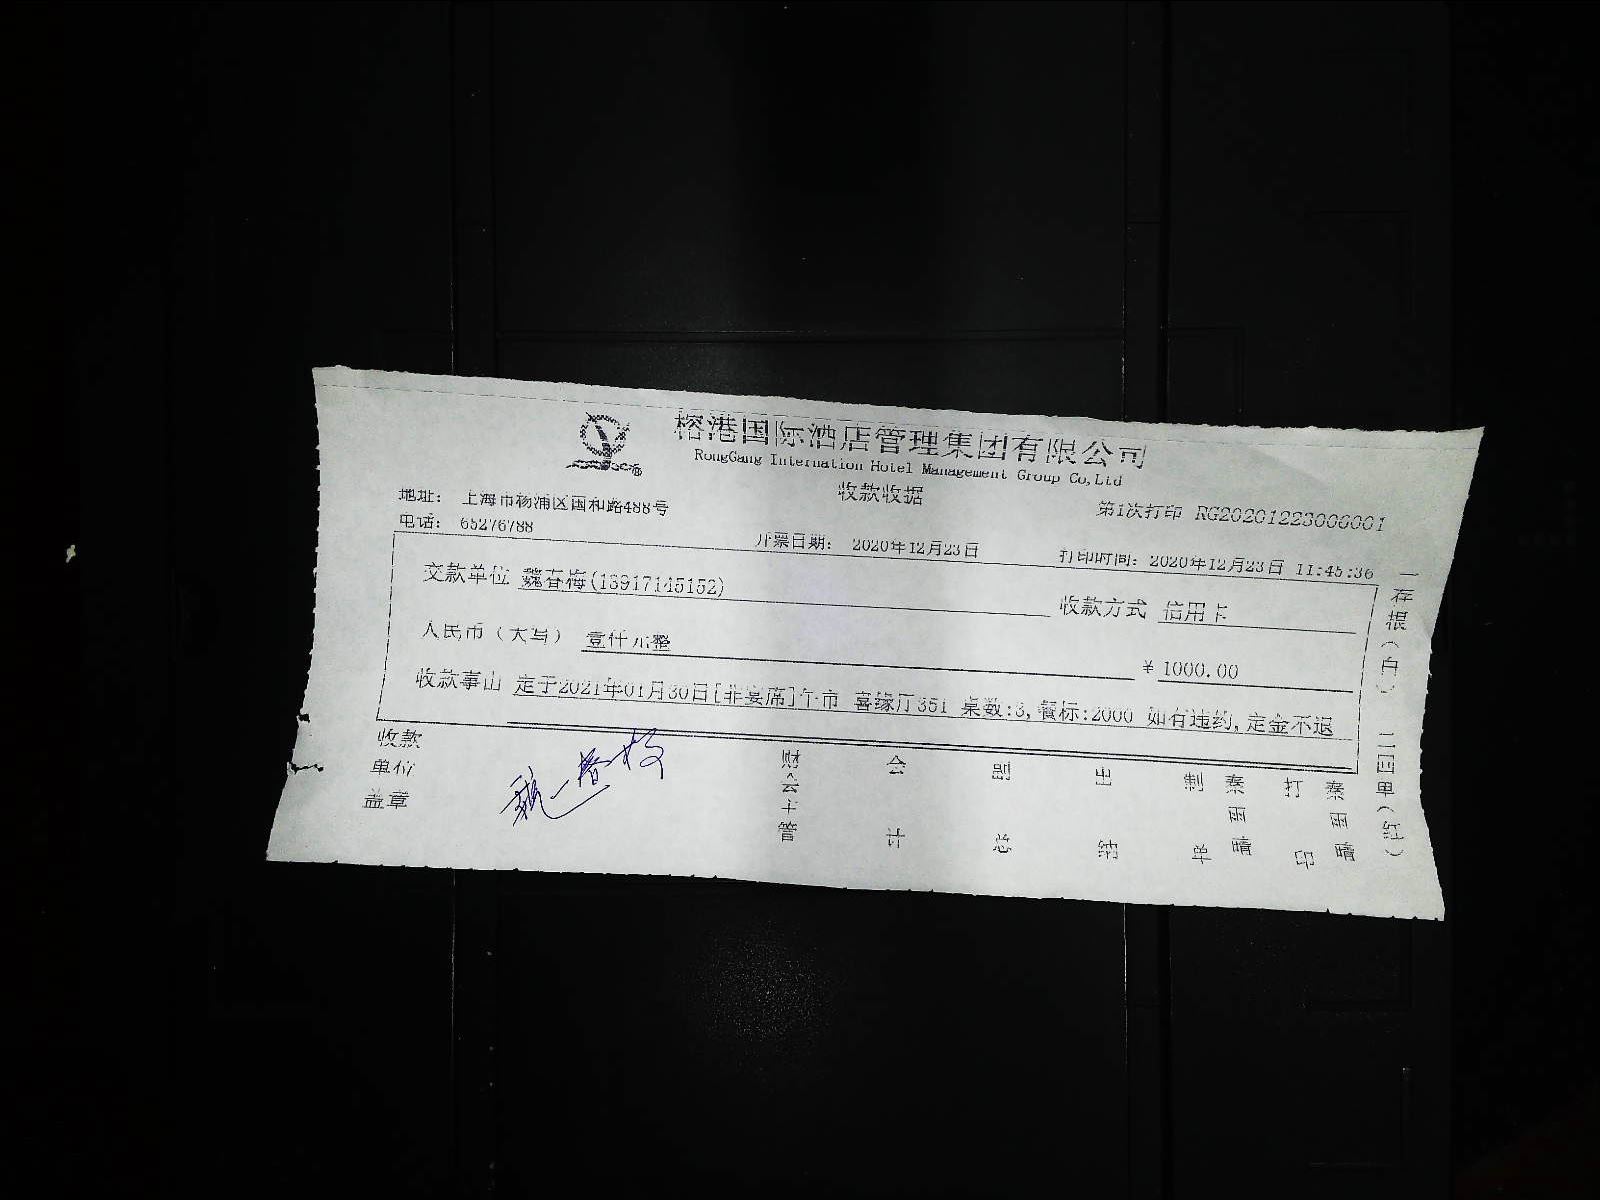 榕港国际酒店管理集团有限公司
RongGang Internation Hotel Management Group Co,Ltd
收款收据
地址： 上海市杨浦区国和路488号
第1次打印 RG20201223000001
电话： 65276788
开票日期： 2020年12月23日
打印时间： 2020年12月23日 11:45:36
交款单位 魏春梅(13917145152)
收款方式 信用卡
人民币（大写） 壹仟元整
￥ 1000.00
收款事由 定于2021年01月30日[非宴席]午市 喜缘厅351 桌数:3,餐标:2000 如有违约,定金不退
收款单位盖章
财会主管
会计
副总
出纳
制单 秦雨晴
打印 秦雨晴
一存根(白) 二回单(红)